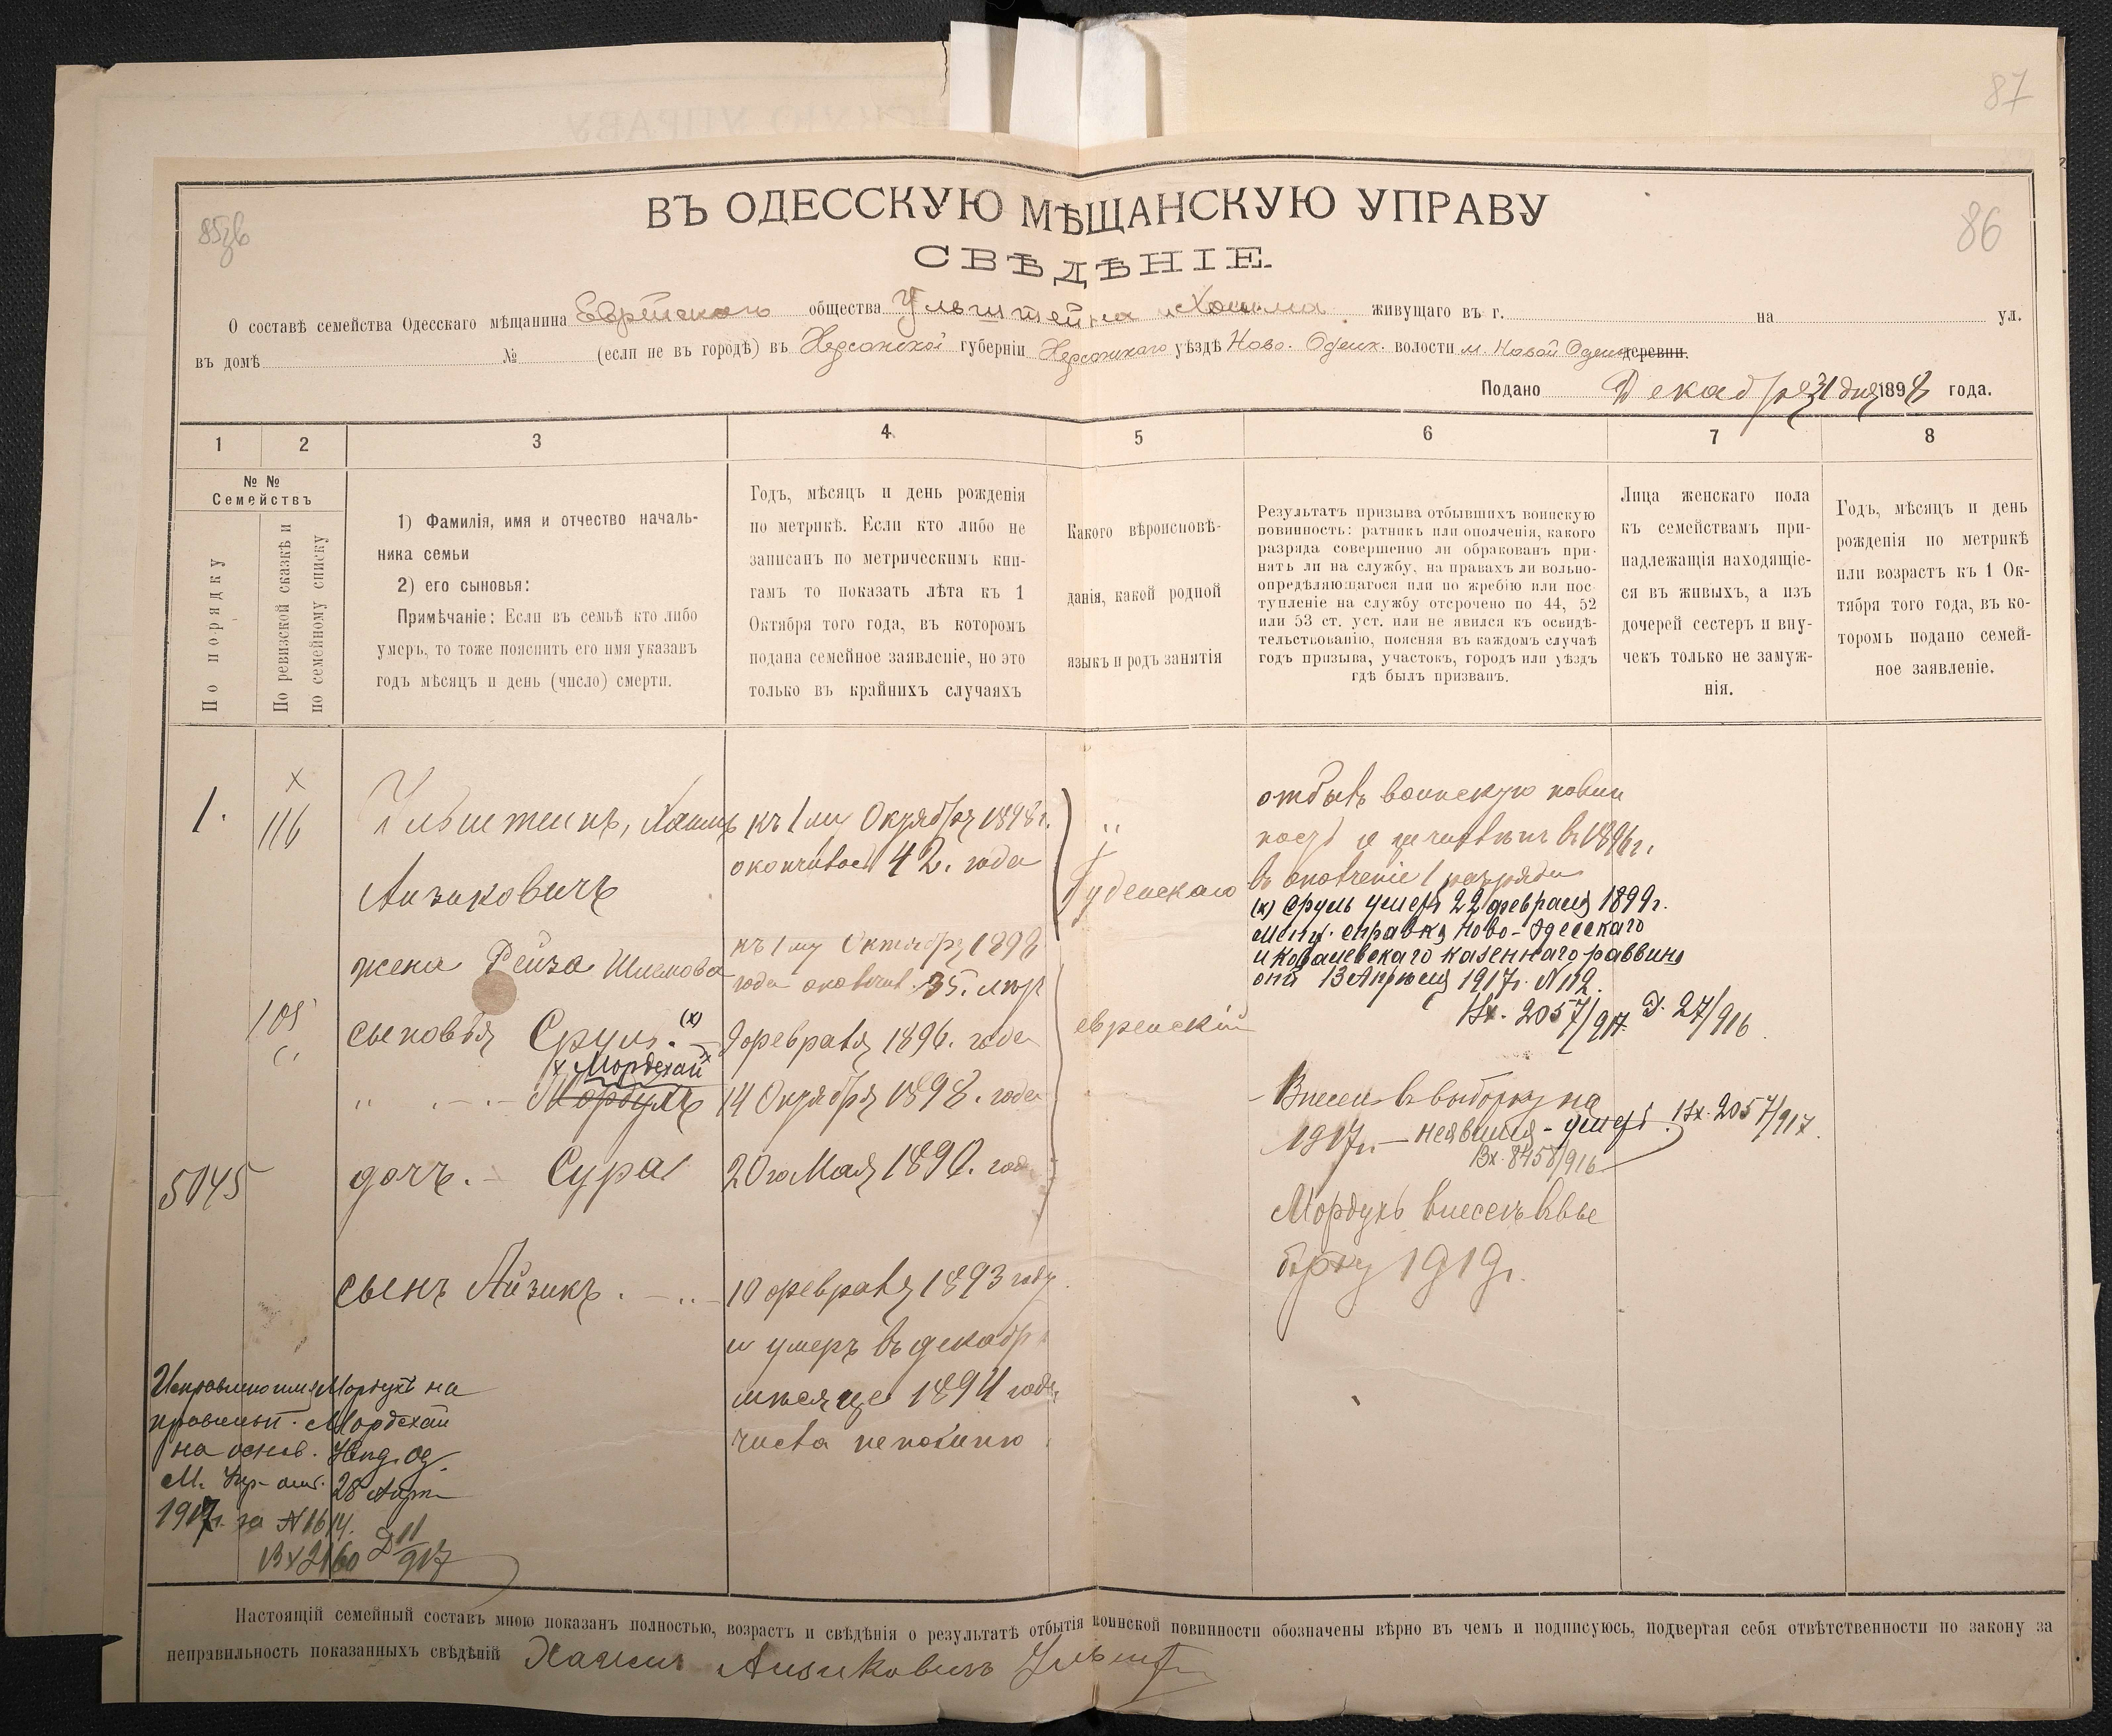 87
ВЪ ОДЕССКУЮ МѢЩАНСКУЮ УПРАВУ
86
СВѢДѢНІЕ
О составѣ семейства Одесскаго мѣщанина Еврейскаго общества Ульштейна Хаима живущаго въ г. на ул.
въ домѣ № (если не въ городѣ) въ Херсонской губерніи Херсонскаго уѣздѣ Ново-Одеск. волости м. Новой Одессы деревни.
Подано Декабря 31 дня 1898 года.
1 2 3 4 5 6 7 8
№ №
Семействъ
По порядку
По ревизской сказкѣ и
по семейному списку
1) Фамилія, имя и отчество началь-
ника семьи
2) его сыновья:
Примѣчаніе: Если въ семьѣ кто либо
умеръ, то тоже пояснить его имя указавъ
годъ мѣсяцъ и день (число) смерти.
Годъ, мѣсяцъ и день рожденія
по метрикѣ. Если кто либо не
записанъ по метрическимъ кни-
гамъ то показать лѣта къ 1
Октября того года, въ которомъ
подана семейное заявленіе, но это
только въ крайнихъ случаяхъ
Какого вѣроисповѣ-
данія, какой родной
языкъ и родъ занятія
Результатъ призыва отбывшихъ воинскую
повинность: ратникъ или ополченія, какого
разряда совершенно ли обракованъ при-
нятъ ли на службу, на правахъ ли вольно-
опредѣляющагося или по жребію или пос-
тупленіе на службу отсрочено по 44, 52
или 53 ст. уст. или не явился къ освидѣ-
тельствованію, поясняя въ каждомъ случаѣ
годъ призыва, участокъ, городъ или уѣздъ
гдѣ былъ призванъ.
Лица женскаго пола
къ семействамъ при-
надлежащія находящіе-
ся въ живыхъ, а изъ
дочерей сестеръ и вну-
чекъ только не замуж-
нія.
Годъ, мѣсяцъ и день
рожденія по метрикѣ
или возрастъ къ 1 Ок-
тября того года, въ ко-
торомъ подано семей-
ное заявленіе.
1.
х
116
Ульштейнъ, Хаимъ
Аизиковичъ
къ 1му Октября 1898 г.
окончилось 42. года
Іудейскаго
отбылъ воинскую повин
въ 1896 г.
въ ополченіе 1 разряда
(х) Сруль умеръ 22 февраля 1899 г.
справка Ново-Одесскаго
и Ковалевскаго казеннаго раввина
отъ 13 Апрѣля 1917 г. N 112.
Вх. 2057/917 Д. 27/916
жена Рейза Шлемова
къ 1му Октября 1898
года окончил. 35. лѣт
109
сыновья Сруль. (х)
9 февраля 1896. года
еврейскій
х Мордехай х
Мордухъ
14 Октября 1898. года
Внесен въ выборку на
1917 г. — неявился - умер. Вх. 2057/917.
Вх. 8458/916
5045
дочь. Сура
20го Мая 1890. год
Мордухъ внесенъ въ вы
борку 1919 г.
сынъ Айзикъ.
10 февраля 1893 году
и умеръ въ декабрѣ
мѣсяце 1894 года
числа непомню
Исправлено имя Мордухъ на
правильн. Мордехай
на основ.
М. Упр. от. 28 Апр
1917 г. за N 1614.
Вх 2160 Д 11/917
Настоящій семейный составъ мною показанъ полностью, возрастъ и свѣдѣнія о результатѣ отбытія воинской повинности обозначены вѣрно въ чемъ и подписуюсь, подвергая себя отвѣтственности по закону за
неправильность показанныхъ свѣдѣній Хаимъ Аизиковичъ Ульшт